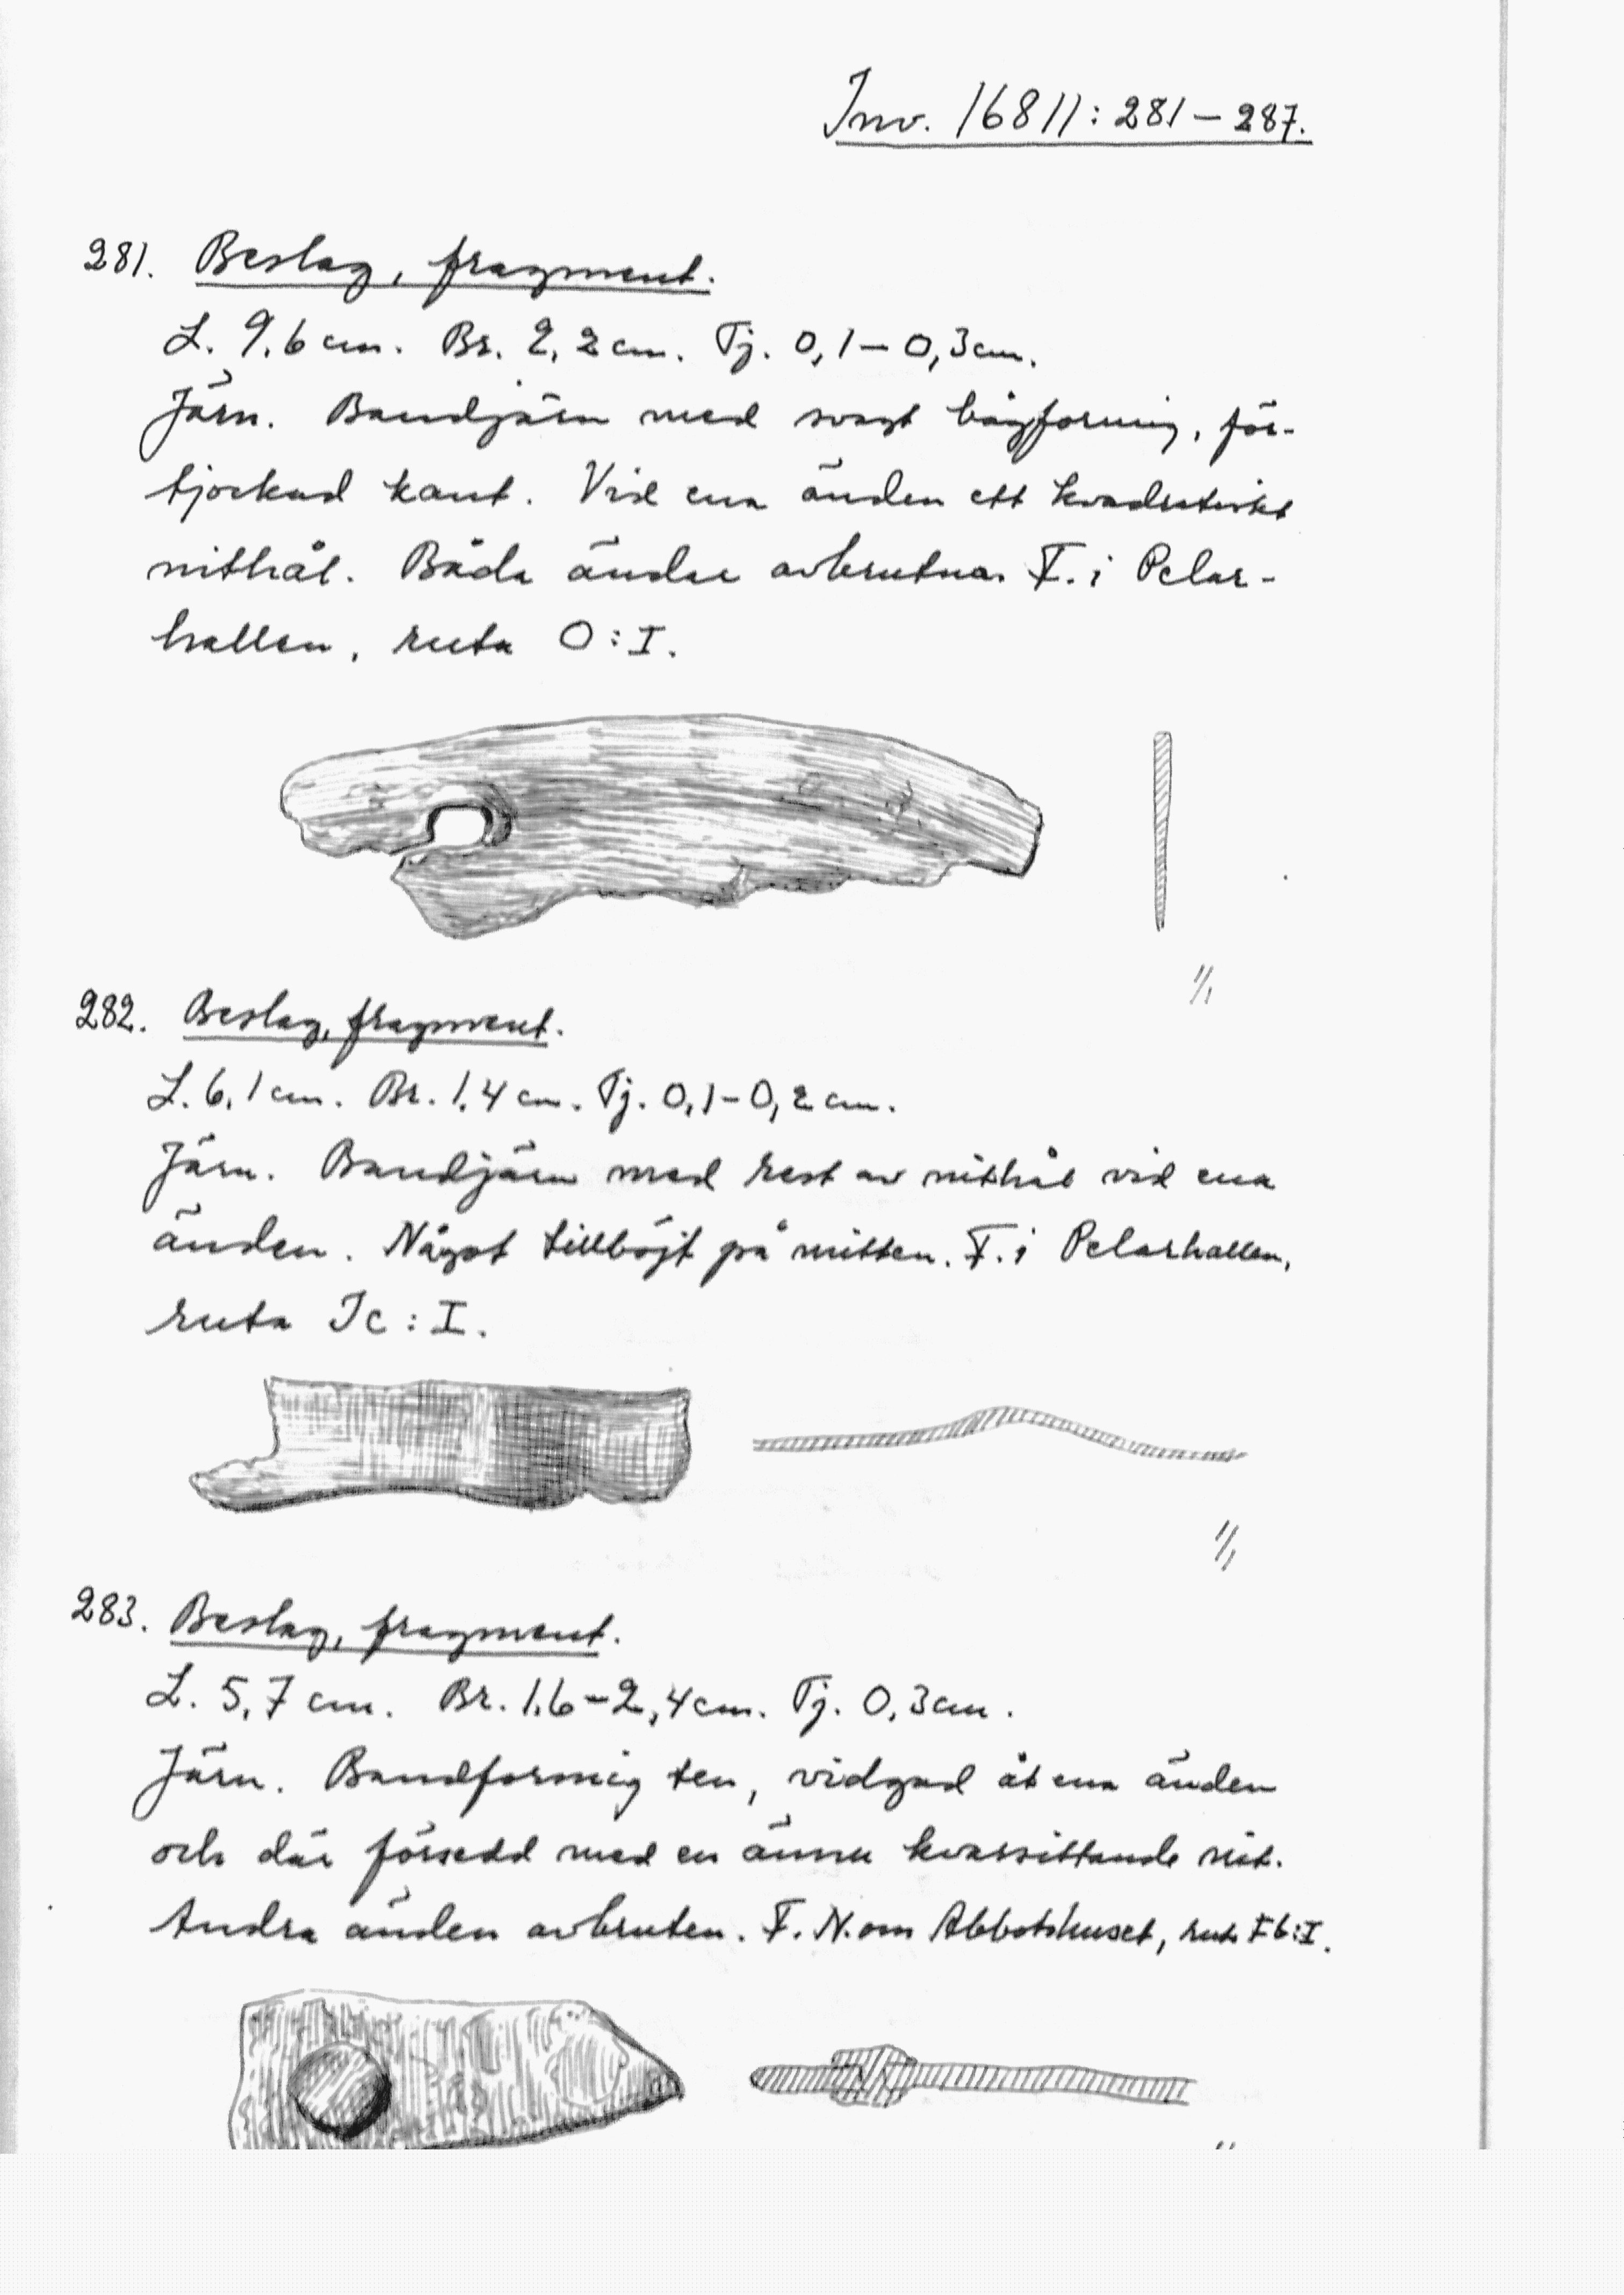 Inv. 16811:281–287.
281. Beslag, fragment.
L. 9,6 cm. Br. 2,2 cm. Tj. 0,1–0,3 cm.
Järn. Bandjärn med svagt bågformig, för-
tjockad kant. Vid ena änden ett kvadratiskt
nithål. Båda ändar avbrutna. F. i Pelar-
hallen, ruta O:I.
1/1
282. Beslag, fragment.
L. 6,1 cm. Br. 1,4 cm. Tj. 0,1–0,2 cm.
Järn. Bandjärn med rest av nithål vid ena
änden. Något tillböjt på mitten. F. i Pelarhallen,
ruta Jc:I.
1/1
283. Beslag, fragment.
L. 5,7 cm. Br. 1,6–2,4 cm. Tj. 0,3 cm.
Järn. Bandformig ten, vidgad åt ena änden
och där försedd med en ännu kvarsittande nit.
Andra änden avbruten. F. N. om Abbotshuset, ruta Fb:I.